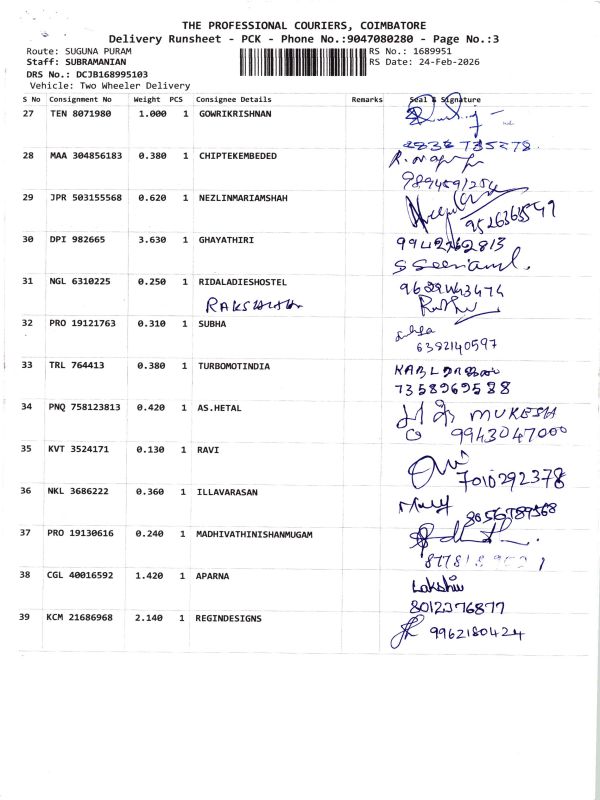 THE PROFESSIONAL COURIERS, COIMBATORE
Delivery Runsheet - PCK - Phone No.:9047080280 - Page No.:3
Route: SUGUNA PURAM RS No.: 1689951
Staff: SUBRAMANIAN RS Date: 24-Feb-2026
DRS No.: DCJB168995103
Vehicle: Two Wheeler Delivery
S No Consignment No Weight PCS Consignee Details Remarks Seal & Signature
27 TEN 8071980 1.000 1 GOWRIKRISHNAN
28 MAA 304856183 0.380 1 CHIPTEKEMBEDED
29 JPR 503155568 0.620 1 NEZLINMARIAMSHAH
9526365549
30 DPI 982665 3.630 1 GHAYATHIRI 9942762813
31 NGL 6310225 0.250 1 RIDALADIESHOSTEL
32 PRO 19121763 0.310 1 SUBHA
6392140597
33 TRL 764413 0.380 1 TURBOMOTINDIA
7358969588
34 PNQ 758123813 0.420 1 AS.HETAL MUKESH
9943047000
35 KVT 3524171 0.130 1 RAVI
7010292378
36 NKL 3686222 0.360 1 ILLAVARASAN
8056789568
37 PRO 19130616 0.240 1 MADHIVATHINISHANMUGAM
38 CGL 40016592 1.420 1 APARNA Lakshmi
8012376877
39 KCM 21686968 2.140 1 REGINDESIGNS 9962180424